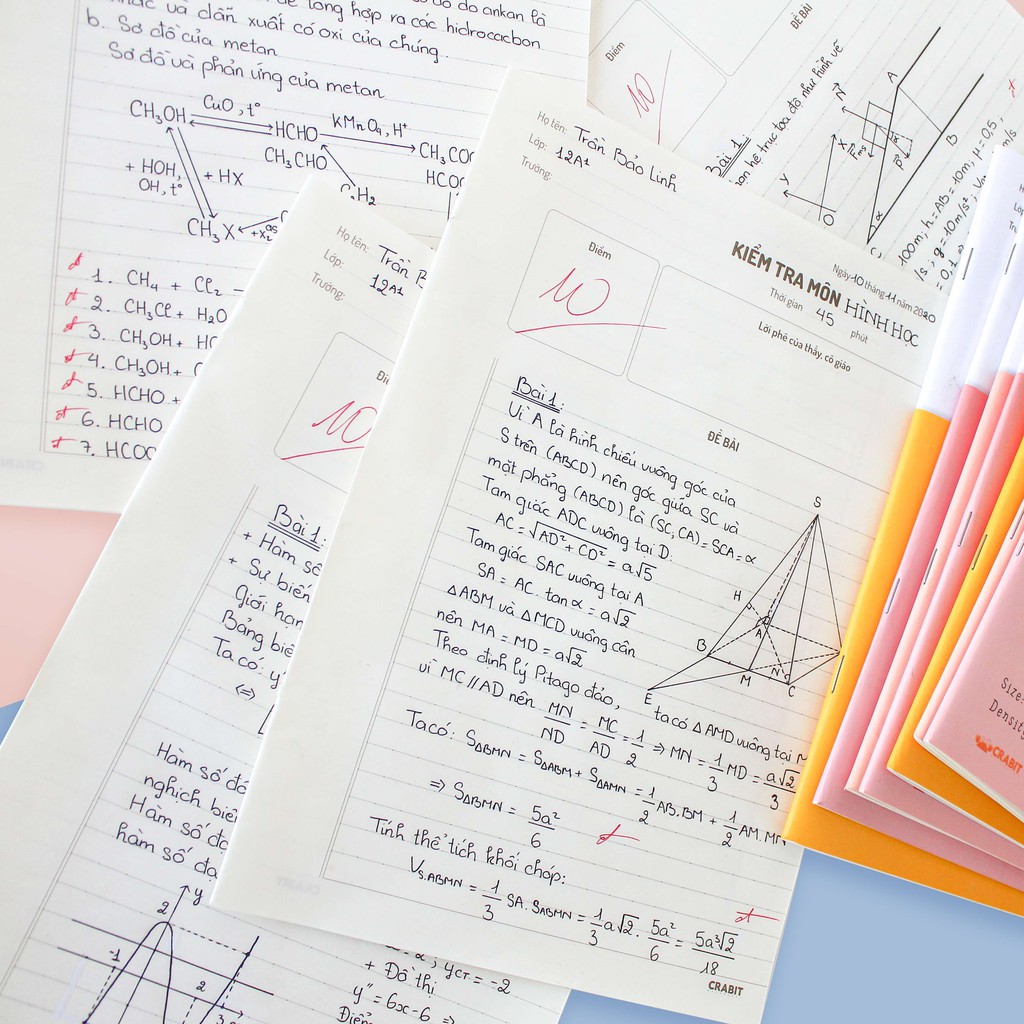 hợp ra các hiđrocacbon
và dẫn xuất có oxi của chúng
b. Sơ đồ của metan
Sơ đồ và phản ứng của metan
CH₃OH
CuO, t°
HCHO
KMnO₄, H⁺
CH₃COO
CH₃CHO
HCOO
+ HOH,
OH, t°
+ HX
C₂H₂
CH₃X
+X₂
as
1. CH₄ + Cl₂
2. CH₃Cl + H₂O
3. CH₃OH + HC
4. CH₃OH +
5. HCHO +
6. HCHO
7. HCOO
Điểm
10
ĐỀ BÀI
Bài 1:
hệ trục tọa độ như hình vẽ
A
N
B
P
y
x
O
α
C
100m; h = AB = 10m; μ = 0,5,
g = 10m/s²,
Họ tên: Trần B
Lớp: 12A1
Trường:
10
Bài 1:
+ Hàm số
+ Sự biến
Giới hạn
Bảng biế
Ta có: y'
⇔
Hàm số đồ
nghịch biế
Hàm số đạ
hàm số đạ
y
2
-1
2
yCT = -2
+ Đồ thị
y'' = 6x-6 ⇒
Điểm
Họ tên: Trần Bảo Linh
Lớp: 12A1
Trường:
Điểm
10
KIỂM TRA MÔN HÌNH HỌC
Ngày 10 tháng 11 năm 2020
Thời gian 45 phút
Lời phê của thầy, cô giáo
ĐỀ BÀI
Bài 1:
Vì A là hình chiếu vuông góc của
S trên (ABCD) nên góc giữa SC và
mặt phẳng (ABCD) là (SC, CA) = SCA = α
Tam giác ADC vuông tại D.
AC = √AD² + CD² = a√5
Tam giác SAC vuông tại A
SA = AC. tan α = a√2
△ABM và △MCD vuông cân
nên MA = MD = a√2
Theo định lý Pitago đảo, ta có △AMD vuông tại M
vì MC // AD nên MN/ND = MC/AD = 1/2 ⇒ MN = 1/3 MD = a√2/3
Ta có: S△BMN = S△ABM + S△AMN = 1/2 AB.BM + 1/2 AM.MN
⇒ S△BMN = 5a²/6
Tính thể tích khối chóp:
VS.ABMN = 1/3 SA. SABMN = 1/3 a√2. 5a²/6 = 5a³√2/18
S
H
A
B
M
N
C
E
CRABIT
Size:
Density
CRABIT